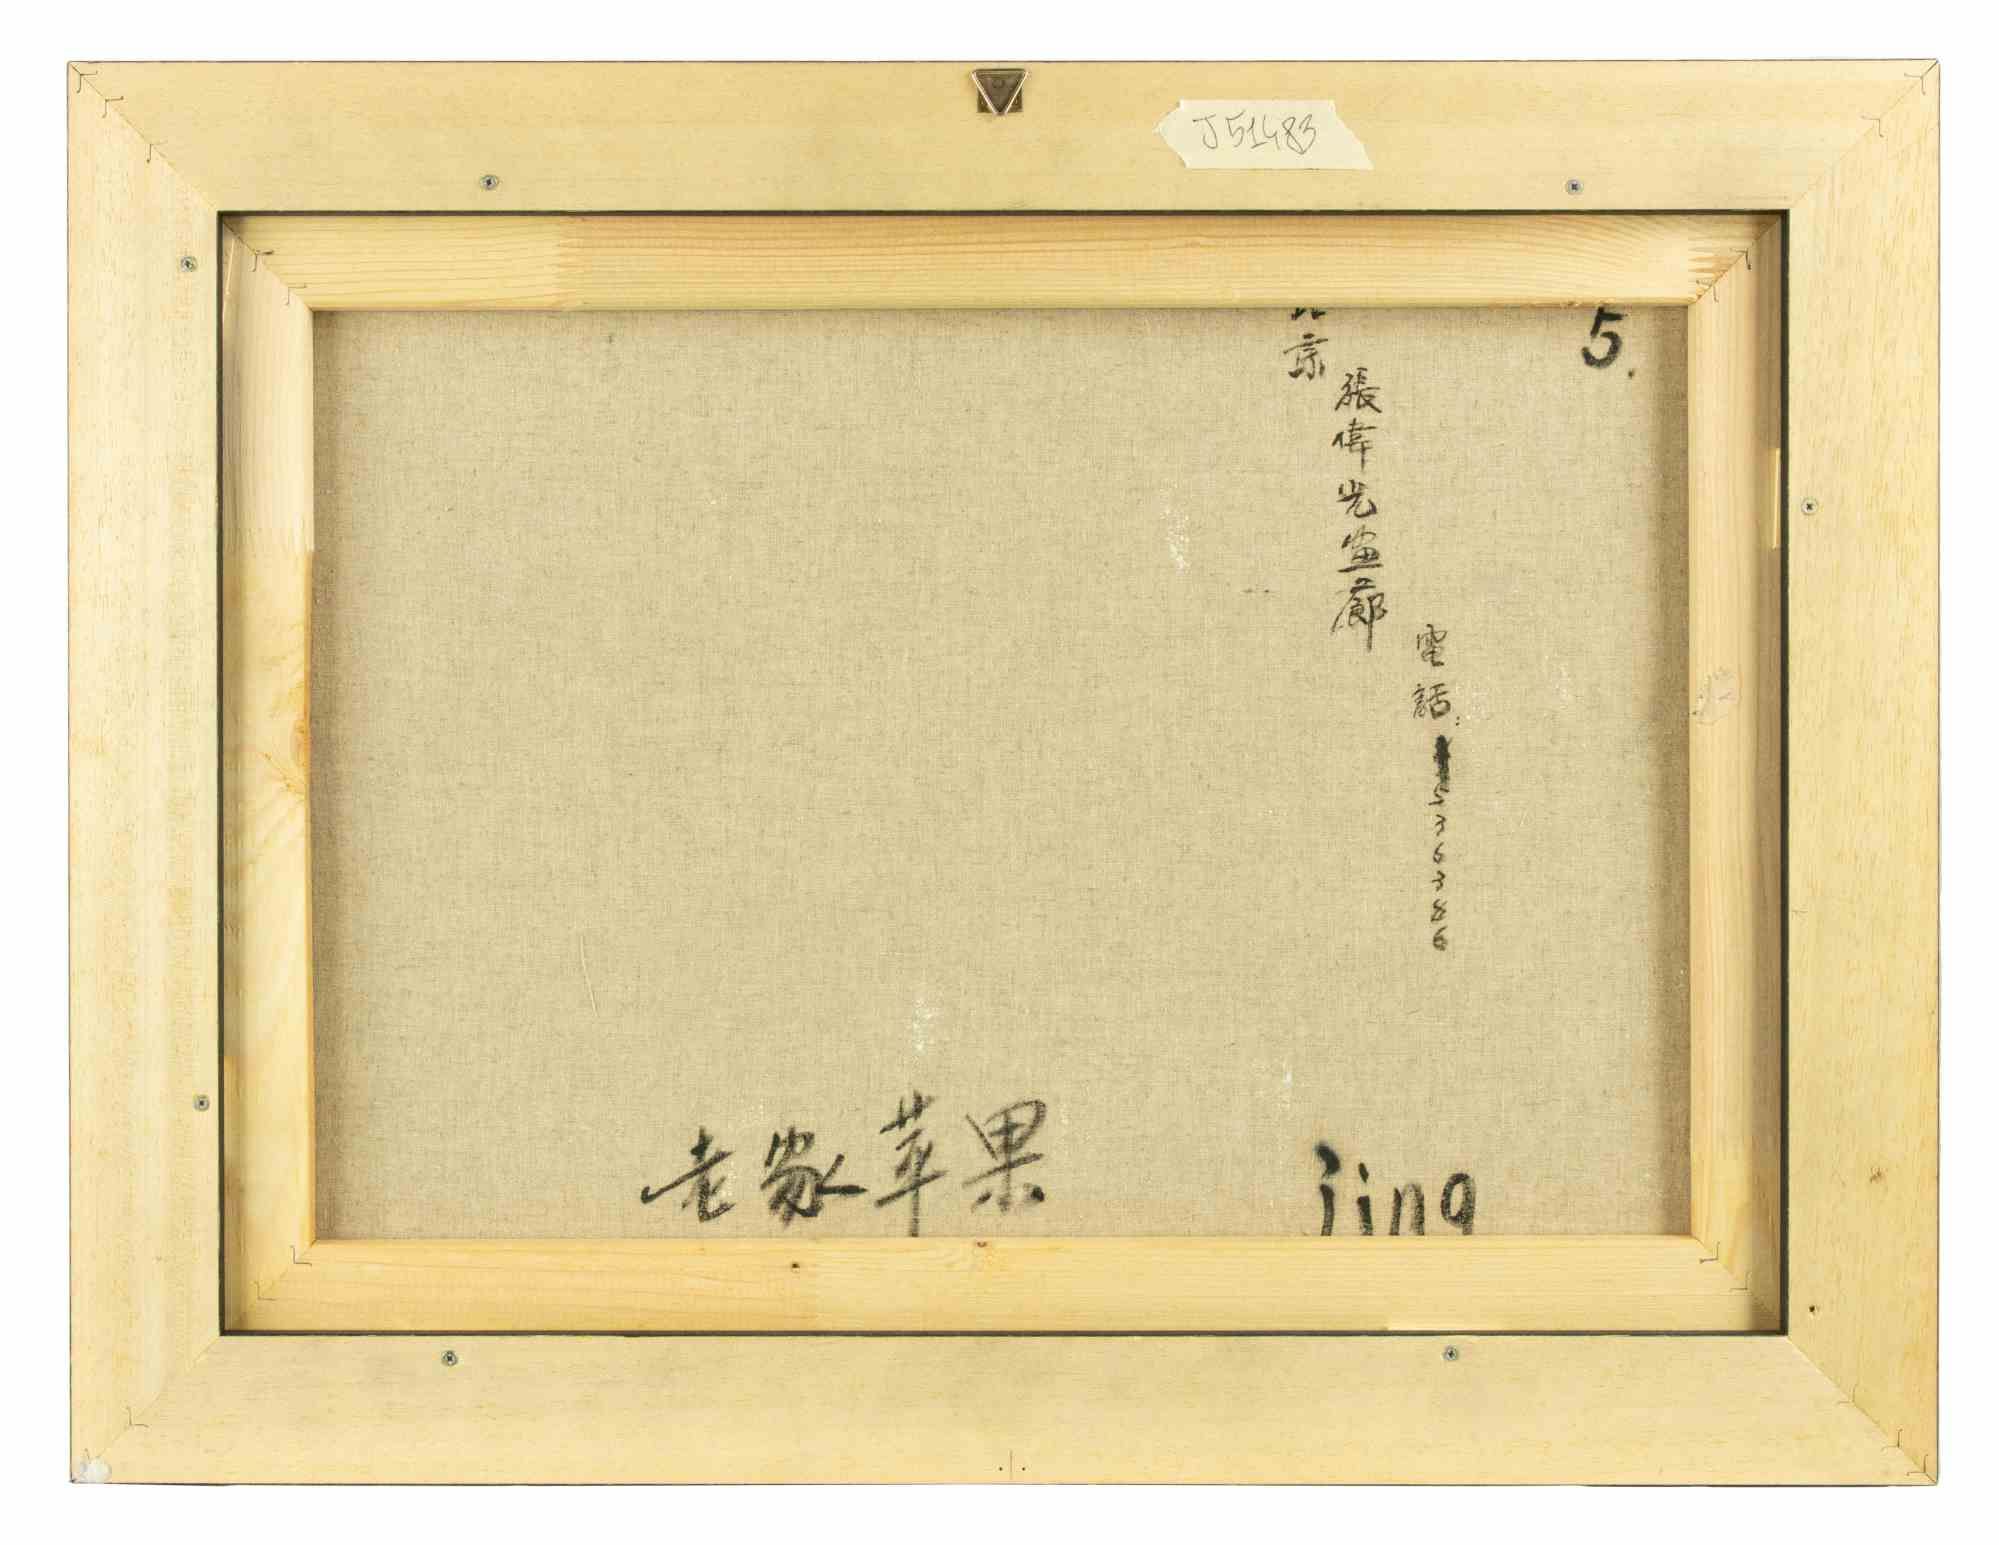 J51483
5.
北京
張偉光畫廊
電話:
5363886
老家苹果
jing